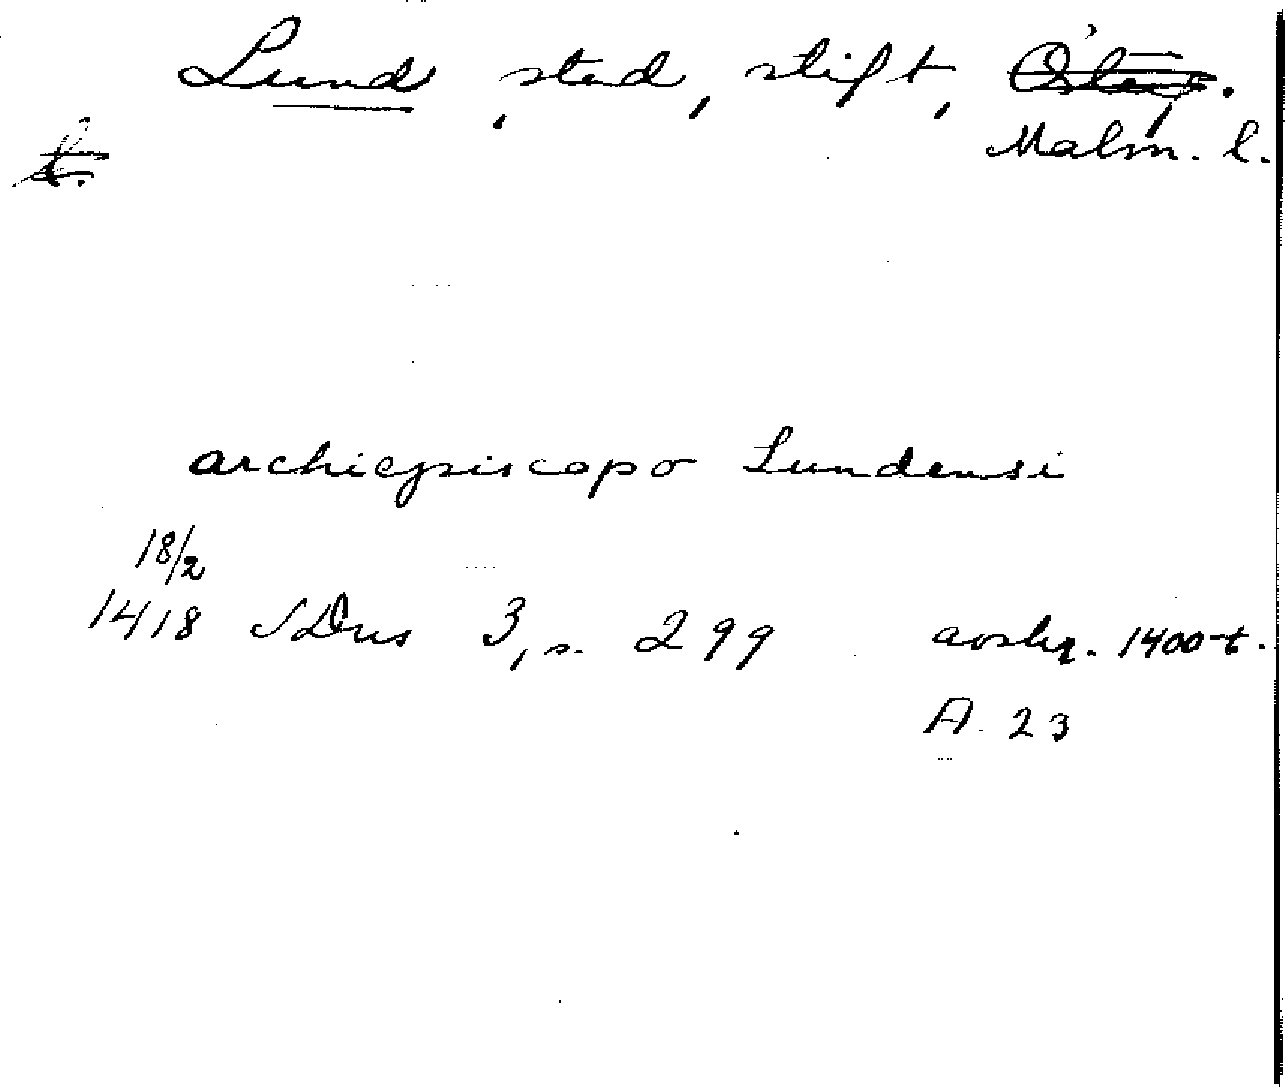 Lund, stad, stift, Östg.
Malm. l.
archiepiscopo Lundensi
18/2
1418 SDns 3, s. 299 avskr. 1400-t.
A 23